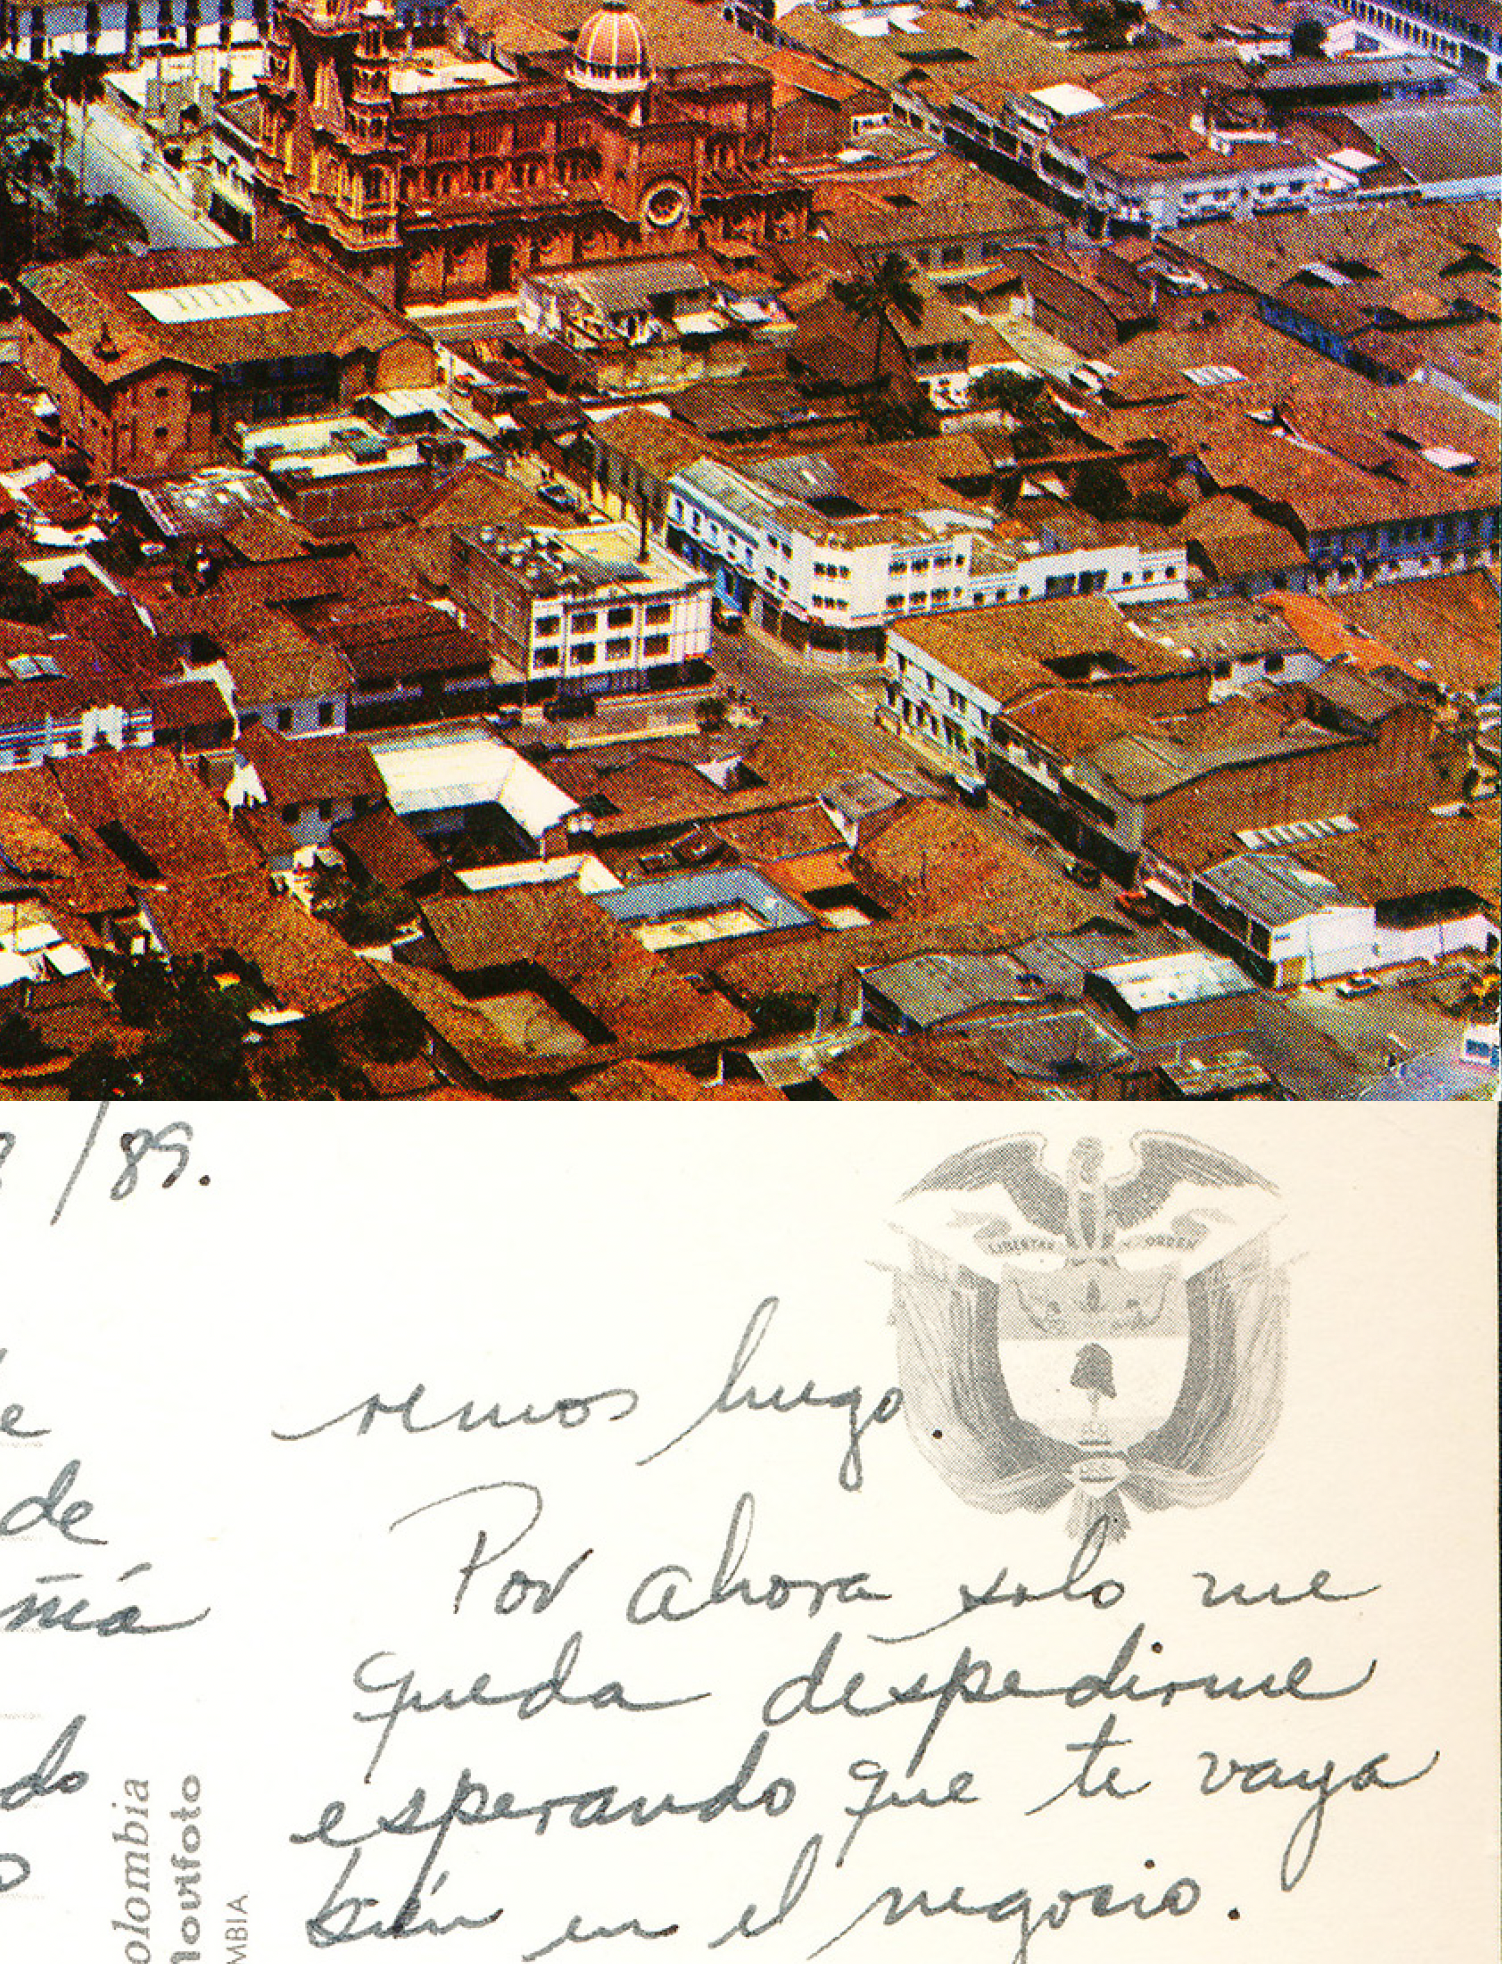 /89.
LIBERTAD Y ORDEN
remos luego.
Por ahora solo me
queda despedirme
esperando que te vaya
bién en el negocio.
de
má
do
olombia
Movifoto
MBIA